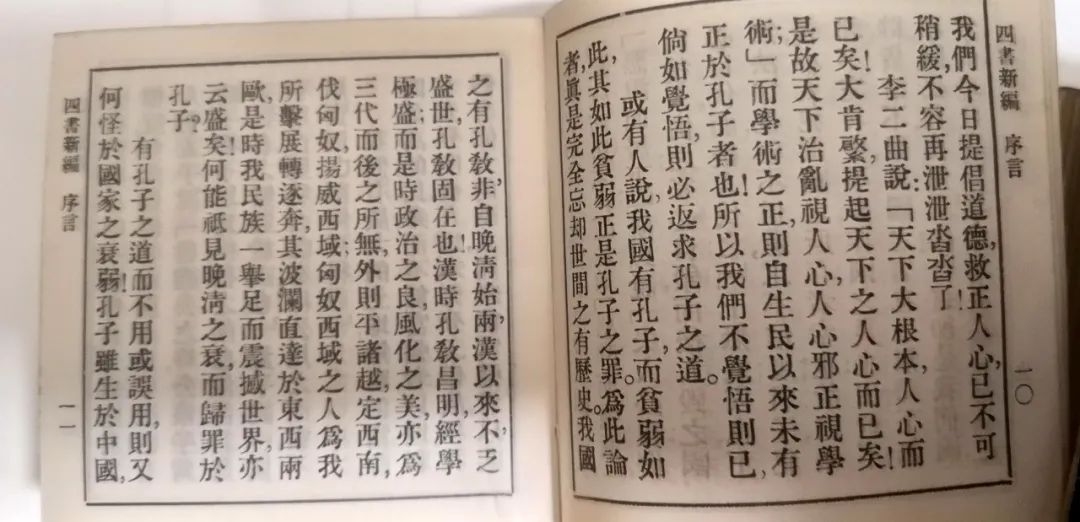 四書新編 序言 一〇
我們今日提倡道德,救正人心,已不可
稍緩,不容再泄泄沓沓了!
李二曲說:「天下大根本人心而
已矣!大肯綮,提起天下之人心而已矣!
是故天下治亂視人心,人心邪正視學
術;」而學術之正,則自生民以來,未有
正於孔子者也!所以我們不覺悟則已,
倘如覺悟,則必返求孔子之道。
或有人說:我國有孔子,而貧弱如
此,其如此貧弱正是孔子之罪。爲此論
者,眞是完全忘却世間之有歷史。我國
之有孔敎,非自晚淸始,兩漢以來,不乏
盛世,孔敎固在也!漢時孔敎昌明,經學
極盛,而是時政治之良,風化之美,亦爲
三代而後之所無,外則平諸越,定西南,
伐匈奴,揚威西域;匈奴西域之人,爲我
所擊,展轉逐奔,其波瀾直達於東西兩
歐,是時我民族一舉足而震撼世界,亦
云盛矣!何能祇見晚淸之衰,而歸罪於
孔子?
有孔子之道而不用,或誤用,則又
何怪於國家之衰弱!孔子雖生於中國,
四書新編 序言 一一